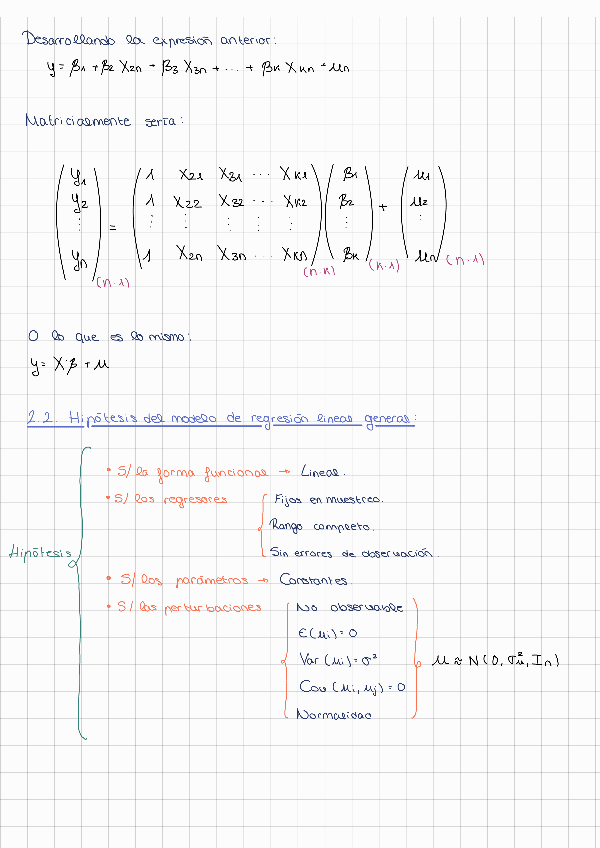 Desarrollando la expresión anterior:
y = β1 + β2 X2n + β3 X3n + ... + βk Xkn + un
Matricialmente sería:
y1   1 X21 X31 ... Xk1   β1   u1
y2   1 X22 X32 ... Xk2   β2 + u2
⋮ = ⋮ ⋮ ⋮ ⋮ ⋮ ⋮ ⋮
yn   1 X2n X3n ... Xkn   βk   un
(n·1) (n·k) (k·1) (n·1)
O lo que es lo mismo:
y = X·β + u
2.2. Hipótesis del modelo de regresión lineal general:
Hipótesis
• S/ la forma funcional → Lineal.
• S/ los regresores
Fijos en muestreo.
Rango completo.
Sin errores de observación.
• S/ los parámetros → Constantes.
• S/ las perturbaciones
No observable
E(ui) = 0
Var (ui) = σ²
Cov (ui, uj) = 0
Normalidad
u ≈ N(0, σ²u, In)